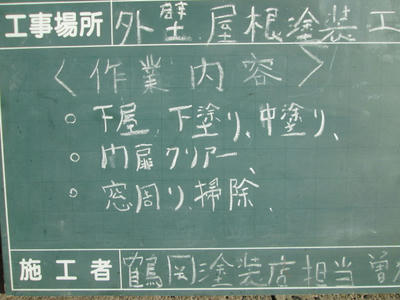 工事場所 外壁、屋根塗装工
〈作業内容〉
○下屋、下塗り、中塗り、
○内扉クリアー、
○窓周り、掃除、
施工者 鶴岡塗装店担当曽